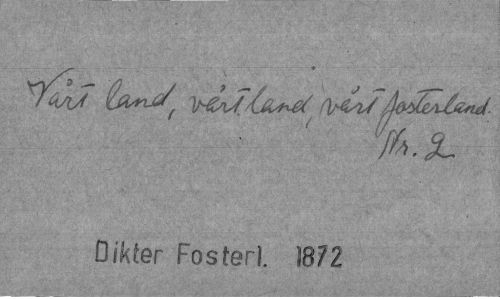 Vårt land, vårt land, vårt fosterland.
Nr. 2
Dikter Fosterl. 1872